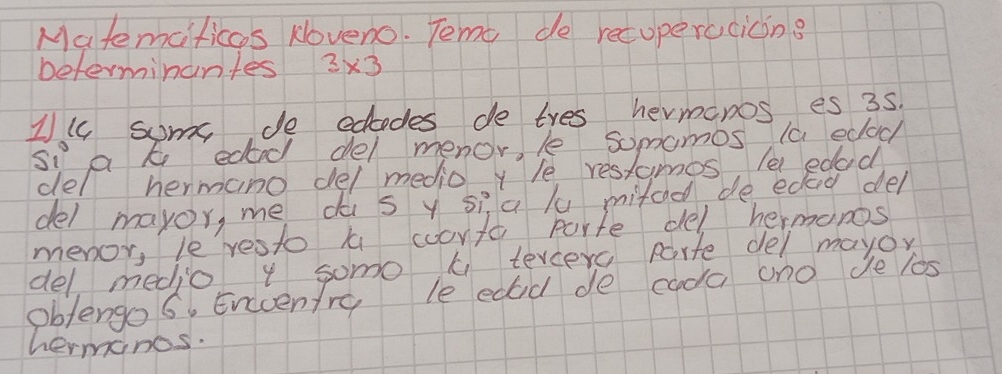 Matemáticas Noveno. Tema de recuperación:
Determinantes 3x3
1) la suma de edades de tres hermanos es 35.
Si a la edad del menor, le sumamos la edad
del hermano del medio y le restamos la edad
del mayor, me da 5 y si, a la mitad de edad del
menor, le resto la cuarta parte del hermanos
del medio y sumo la tercera parte del mayor
obtengo 6. Encuentra le edad de cada uno de los
hermanos.